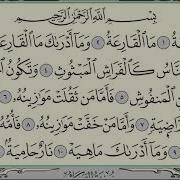 بِسْمِ ٱللَّهِ ٱلرَّحْمَٰنِ ٱلرَّحِيمِ
ـةُ ١ مَا ٱلْقَارِعَةُ ٢ وَمَآ أَدْرَىٰكَ مَا ٱلْقَارِعَـ
ـنَّاسُ كَٱلْفَرَاشِ ٱلْمَبْثُوثِ ٤ وَتَكُونُ ٱلْـ
ٱلْمَنفُوشِ ٥ فَأَمَّا مَن ثَقُلَتْ مَوَٰزِينُهُۥ ٦
ـاضِيَةٍ ٧ وَأَمَّا مَنْ خَفَّتْ مَوَٰزِينُهُۥ ٨ فَأُمُّهُۥ
٩ وَمَآ أَدْرَىٰكَ مَا هِيَهْ ١٠ نَارٌ حَامِيَةٌۢ